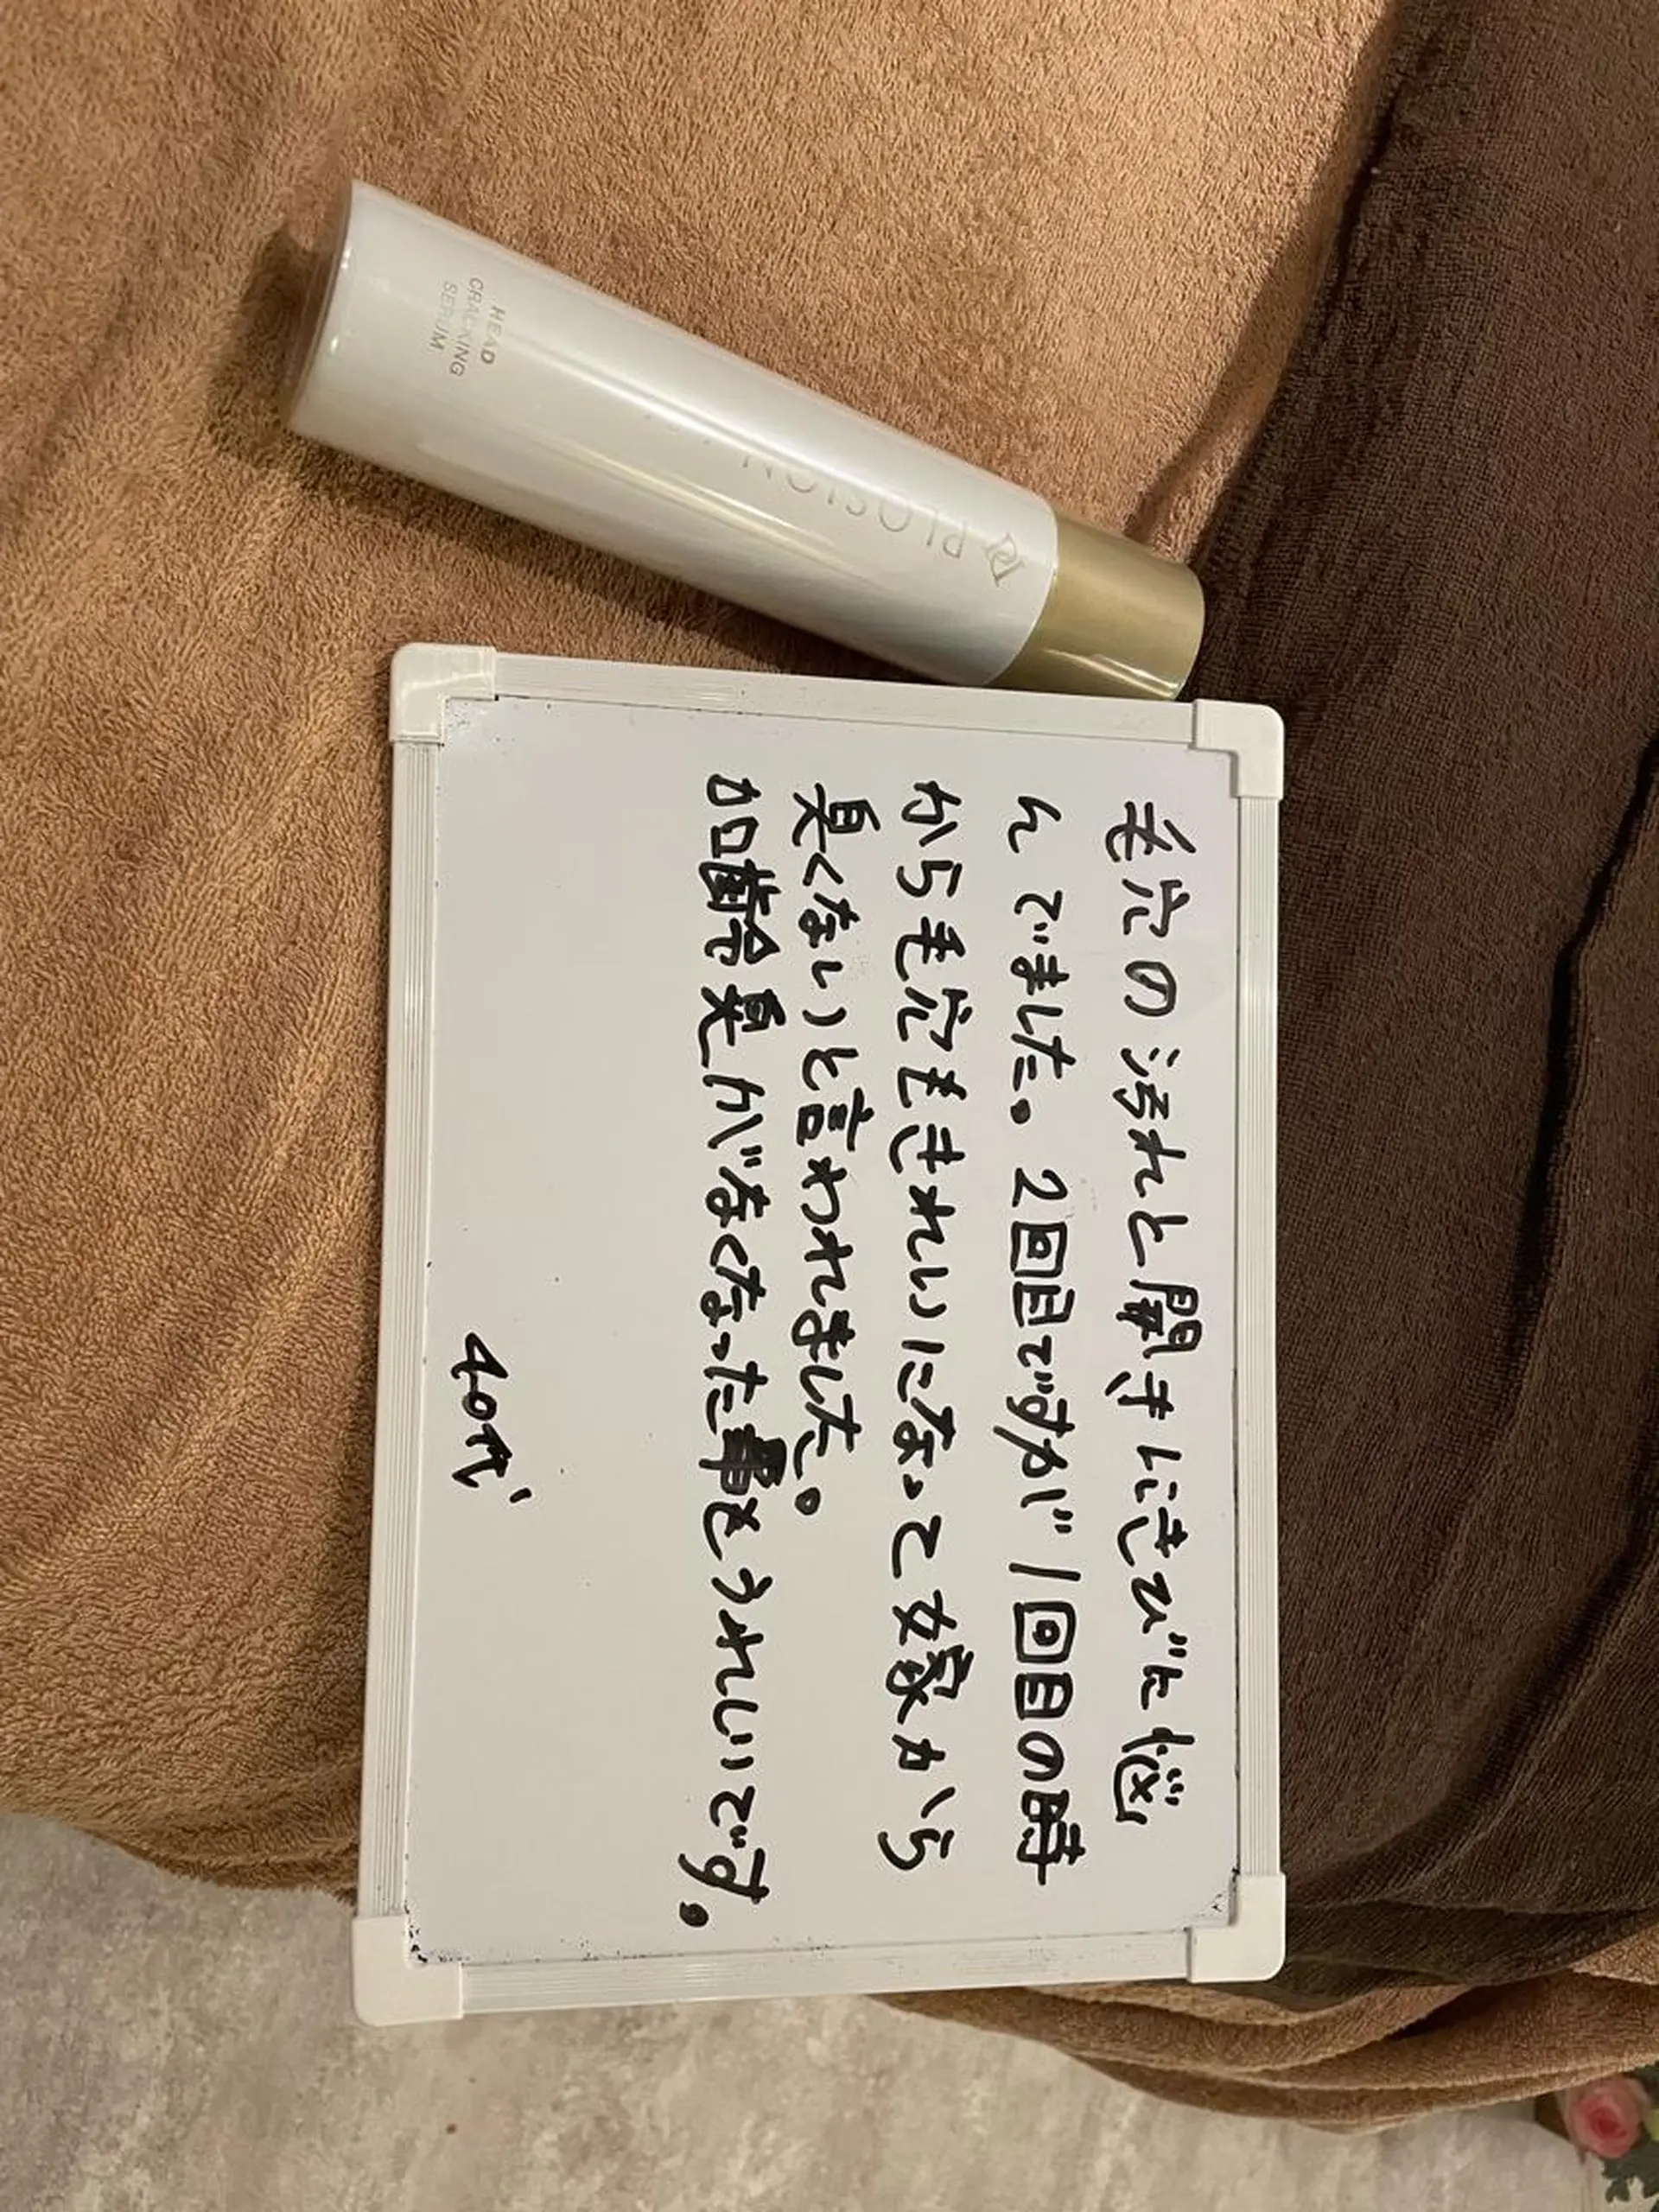 毛穴の汚れと開きにきびに悩
んでました。2回目ですが1回目の時
から毛穴もきれいになって嫁から
臭くないと言われました。
加齢臭がなくなった事もうれしいです。
40代
PLOSION
HEAD
CRACKING
SERUM